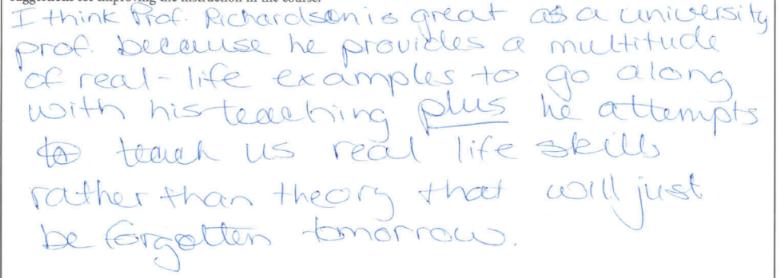 suggestions for improving the instruction in the course.
I think Prof. Richardson is great as a university
prof. because he provides a multitude
of real-life examples to go along
with his teaching plus he attempts
to teach us real life skills
rather than theory that will just
be forgotten tomorrow.